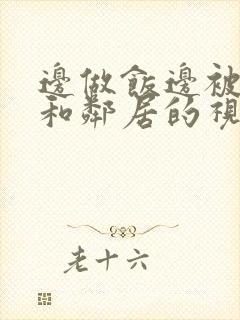 邊做飯邊被
和鄰居的視
老十六